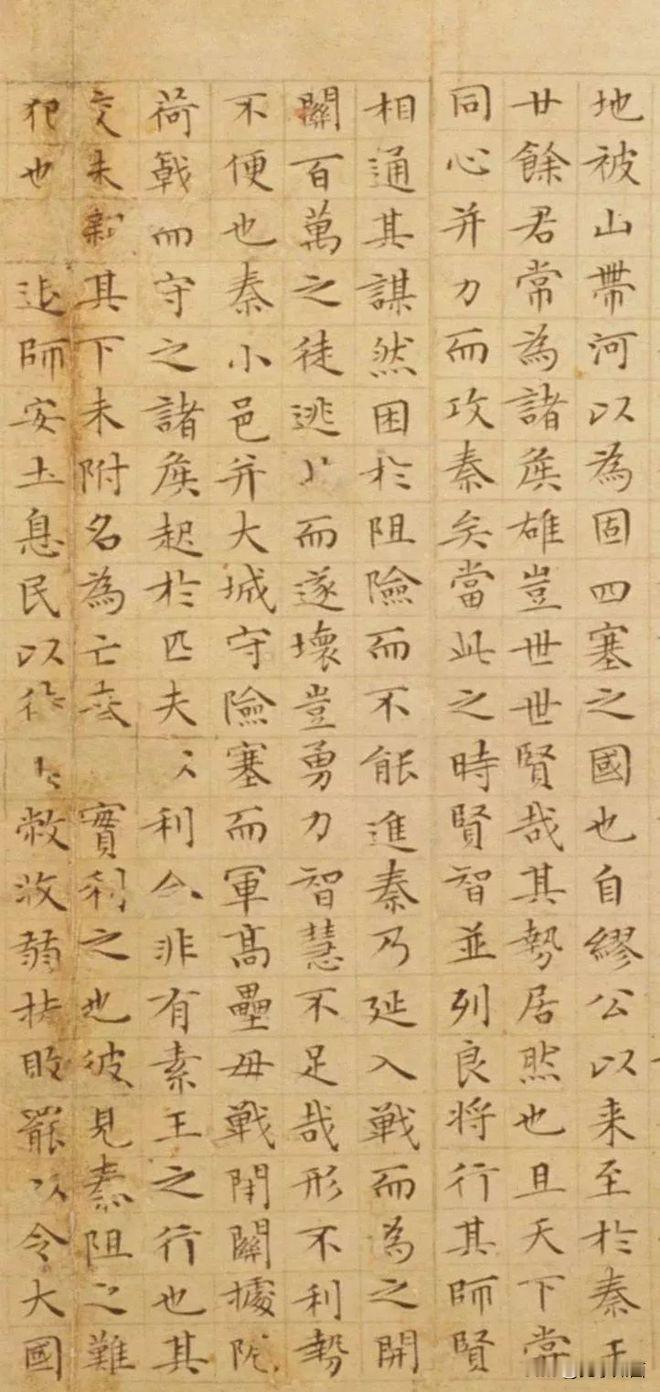 地被山帶河以為固四塞之國也自繆公以来至於秦王
廿餘君常為諸侯雄豈世世賢哉其勢居然也且天下嘗
同心并力而攻秦矣當此之時賢智並列良将行其師賢
相通其謀然困於阻險而不能進秦乃延入戰而為之開
關百萬之徒逃而遂壞豈勇力智慧不足哉形不利勢
不便也秦小邑并大城守險塞而軍高壘毋戰閇關據阨
荷戟而守之諸侯起於匹夫利合非有素王之行也其
交未親其下未附名為亡秦實利之也彼見秦阻之難
犯也退師安土息民以待敝收弱扶敗罷以令大國